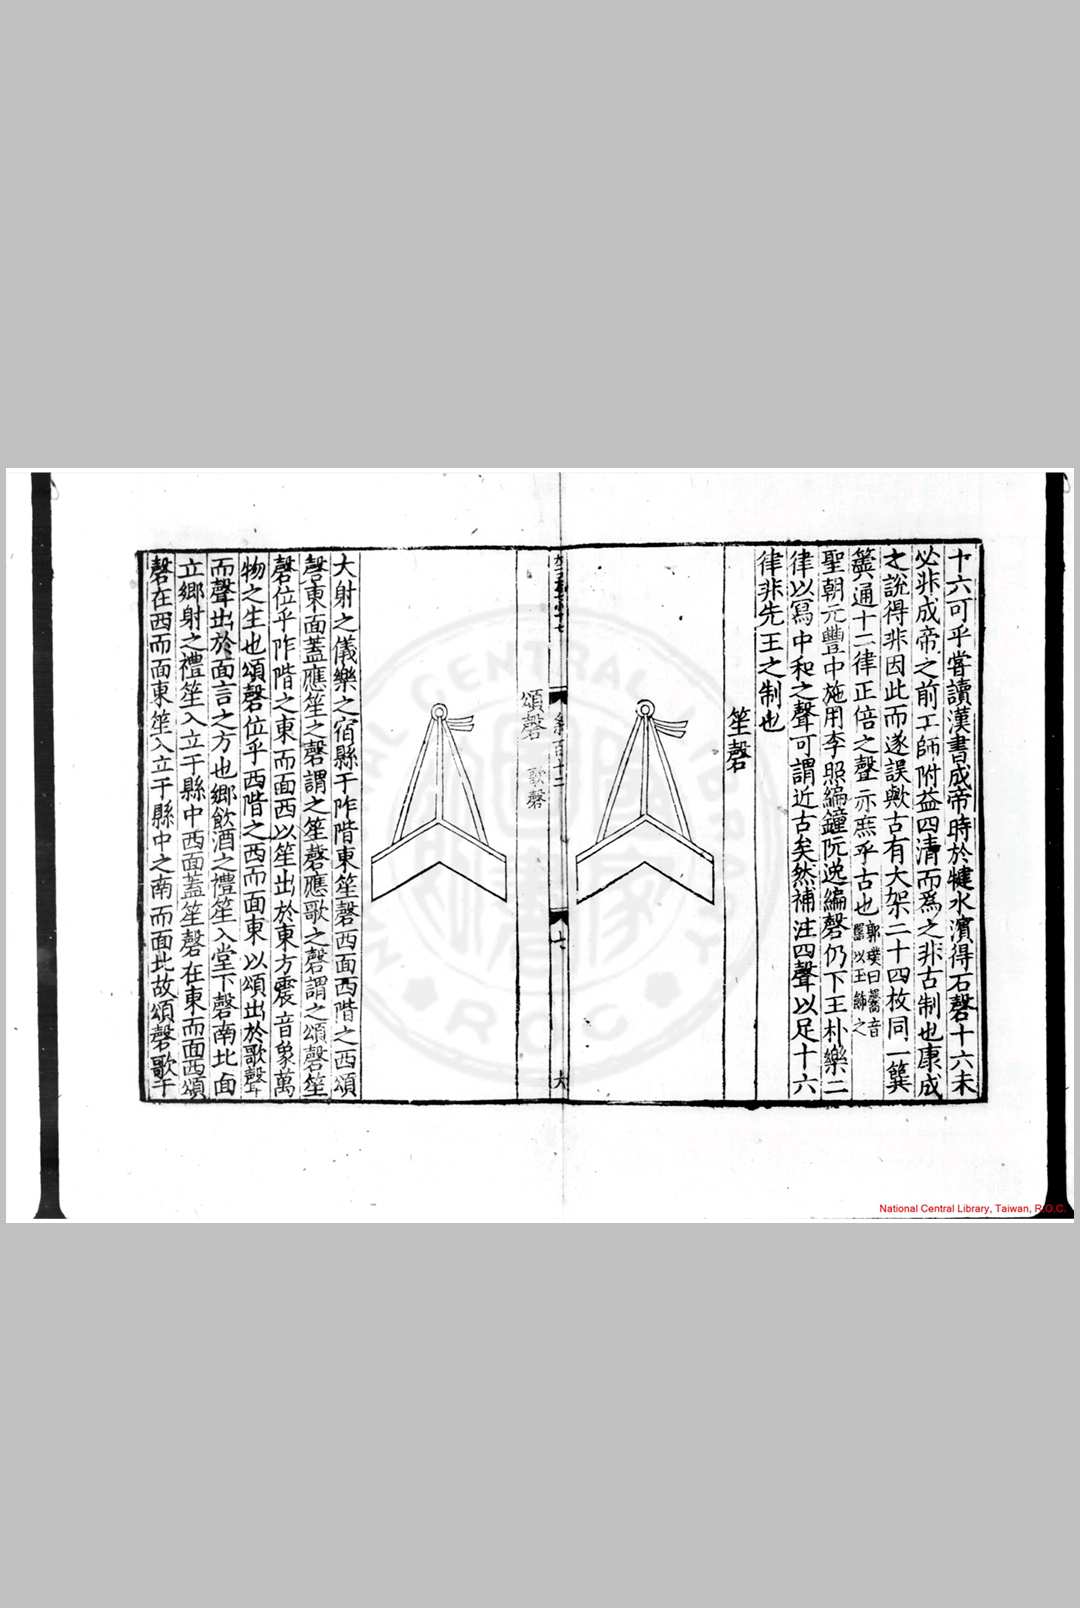 十六可乎嘗讀漢書成帝時於犍水濱得石磬十六未
必非成帝之前工師附益四清而爲之非古制也康成
之說得非因此而遂誤歟古有大架二十四枚同一簨
簴通十二律正倍之聲亦庶乎古也郭璞曰䃔音
罍以玉飾之
聖朝元豐中施用李照編鐘阮逸編磬仍下王朴樂二
律以寫中和之聲可謂近古矣然補注四聲以足十六
律非先王之制也
笙磬
頌磬 歌磬
大射之儀樂之宿縣于阼階東笙磬西面西階之西頌
磬東面蓋應笙之磬謂之笙磬應歌之磬謂之頌磬笙
磬位乎阼階之東而面西以笙出於東方震音象萬
物之生也頌磬位乎西階之西而面東以頌出於歌聲
而聲出於面言之方也鄉飲酒之禮笙入堂下磬南北面
立鄉射之禮笙入立于縣中西面蓋笙磬在東而面西頌
磬在西而面東笙入立于縣中之南而面北故頌磬歌于
National Central Library, Taiwan, R.O.C.
NATIONAL CENTRAL LIBRARY
R.O.C